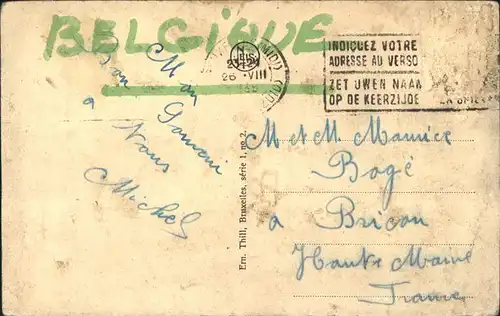 BELGIQUE
23-24
26 VIII
INDIQUEZ VOTRE
ADRESSE AU VERSO
ZET UWEN NAAM
OP DE KEERZIJDE
Mon
Bon
à Nous
Michel
Ern. Thill, Bruxelles, série 1, no 2.
M et M. Maurice
Bogé
à Bricon
Haute Marne
France